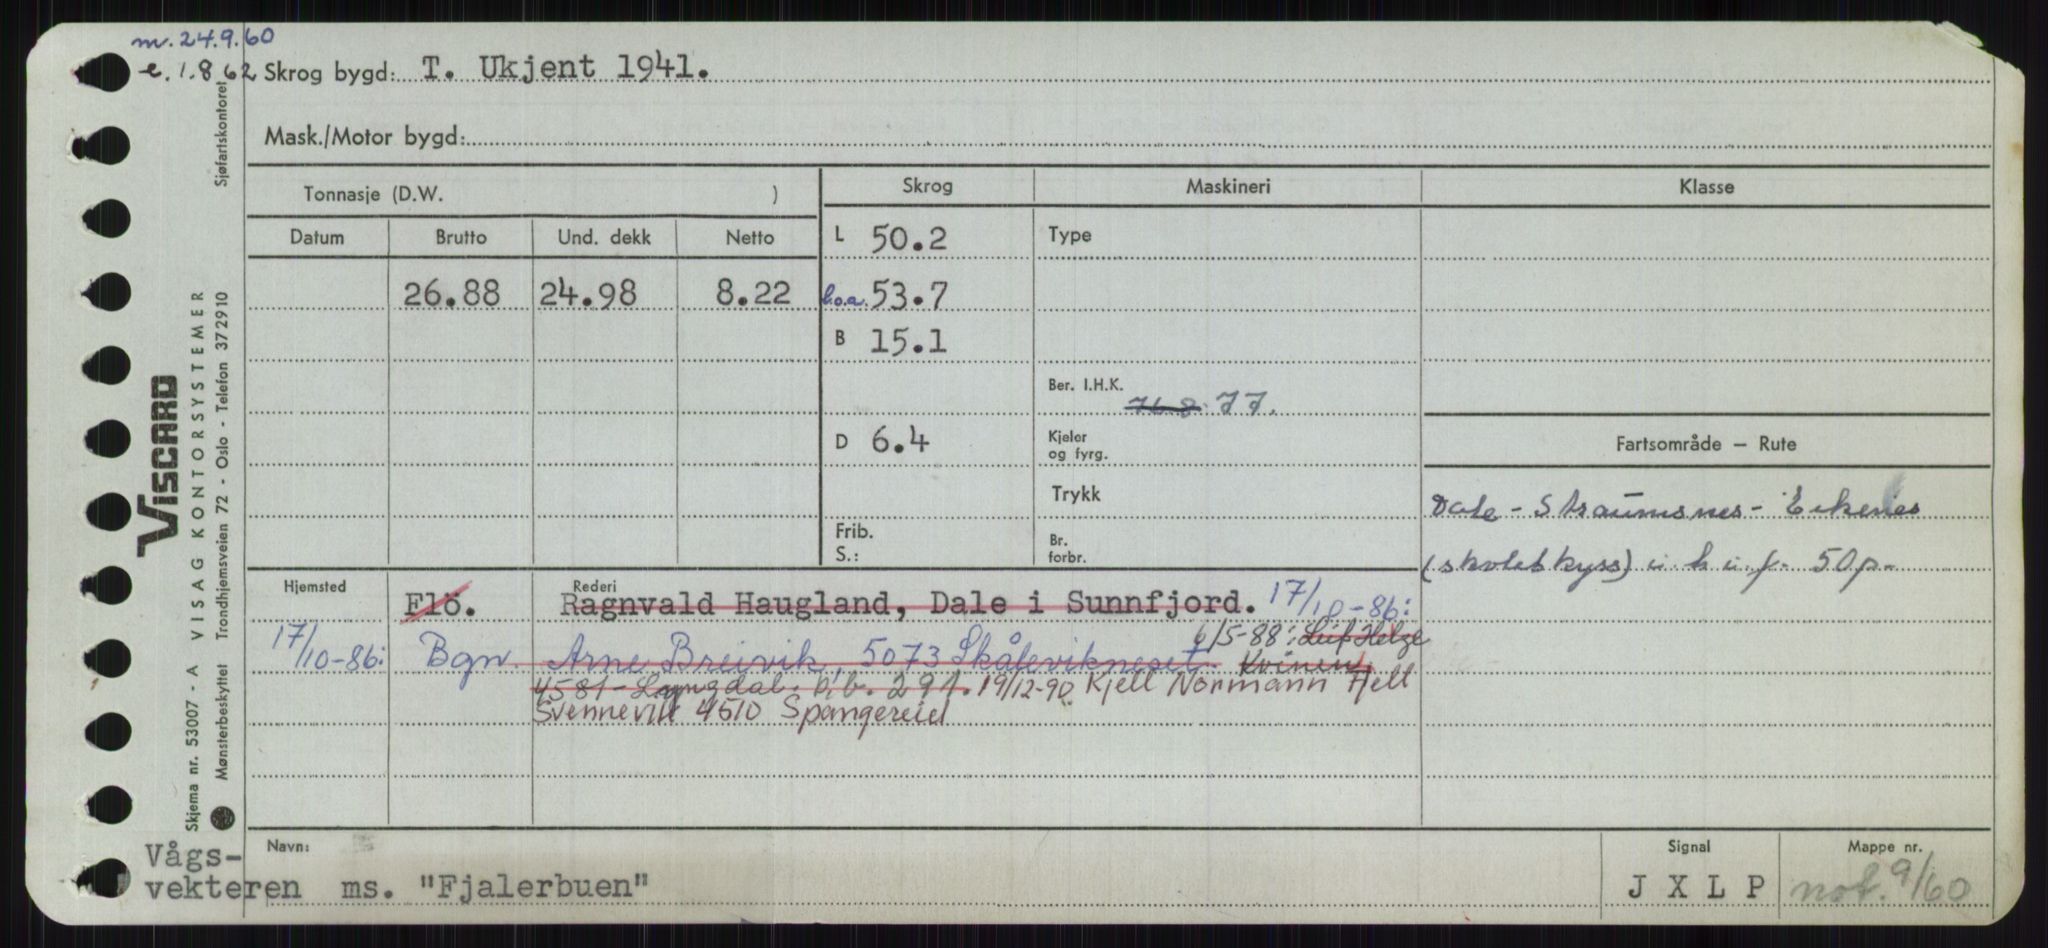 m. 24.9.60
e. 1.8 62 Skrog bygd: T. Ukjent 1941.
Mask./Motor bygd:
Tonnasje (D.W. )
Skrog
Maskineri
Klasse
Datum Brutto Und. dekk Netto
26.88 24.98 8.22
L 50.2
l.o.a. 53.7
B 15.1
D 6.4
Frib.
S.:
Type
Ber. I.H.K.
77.
Kjeler
og fyrg.
Trykk
Br.
forbr.
Fartsområde – Rute
Dale - Straumsnes - Eikenes
(skoleskyss) i. h. i. f. 50 p.
Hjemsted Rederi
Flö. Ragnvald Haugland, Dale i Sunnfjord. 17/10-86:
17/10-86: Bgn. Arne Breivik, 5073 Skålevikneset 6/5-88: Leif Helge
Kvinen,
4581 - Lyngdal. b,b. 291. 19/12-90 Kjell Normann Fjell
Svennevik 4510 Spangereid
Navn:
Vågs-
vekteren ms. "Fjalerbuen"
Signal
J X L P
Mappe nr.
not. 9/60
Sjøfartskontoret
VISCARD
VISAG KONTORSYSTEMER
Skjema nr. 53007 - A
Mønsterbeskyttet Trondhjemsveien 72 - Oslo - Telefon 372910